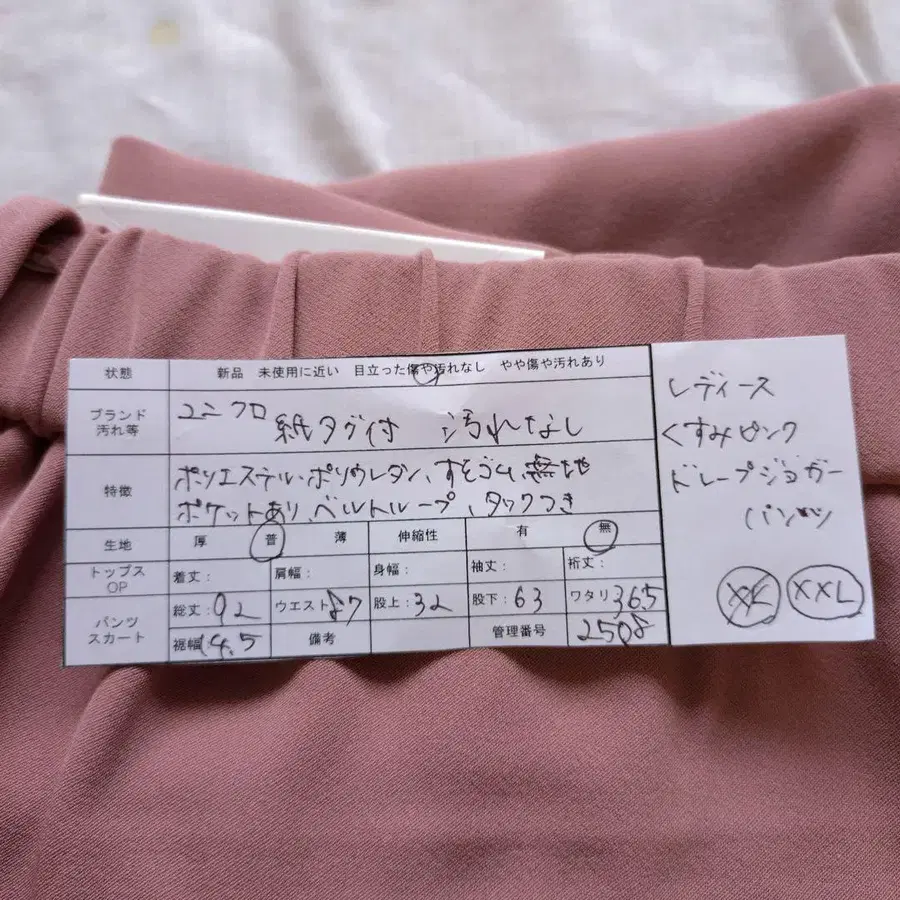 状態 新品 未使用に近い 目立った傷や汚れなし やや傷や汚れあり
ブランド 汚れ等 ユニクロ 紙タグ付 汚れなし
特徴 ポリエステル、ポリウレタン、すそゴム、無地
ポケットあり、ベルトループ、タックつき
生地 厚 普 薄 伸縮性 有 無
トップス OP 着丈: 肩幅: 身幅: 袖丈: 裄丈:
パンツ スカート 総丈:92 ウエスト87 股上:32 股下:63 ワタリ36.5
裾幅14.5 備考 管理番号 2508
レディース
くすみピンク
ドレープジョガー
パンツ
XXL